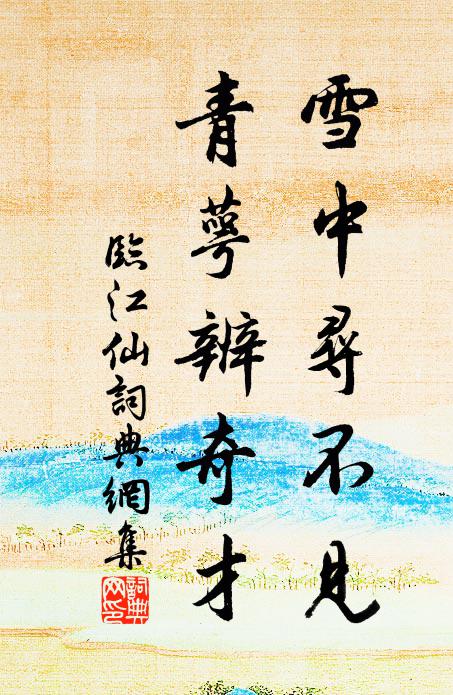 雪中尋不見
青萼辨奇才
臨江仙詞典網集